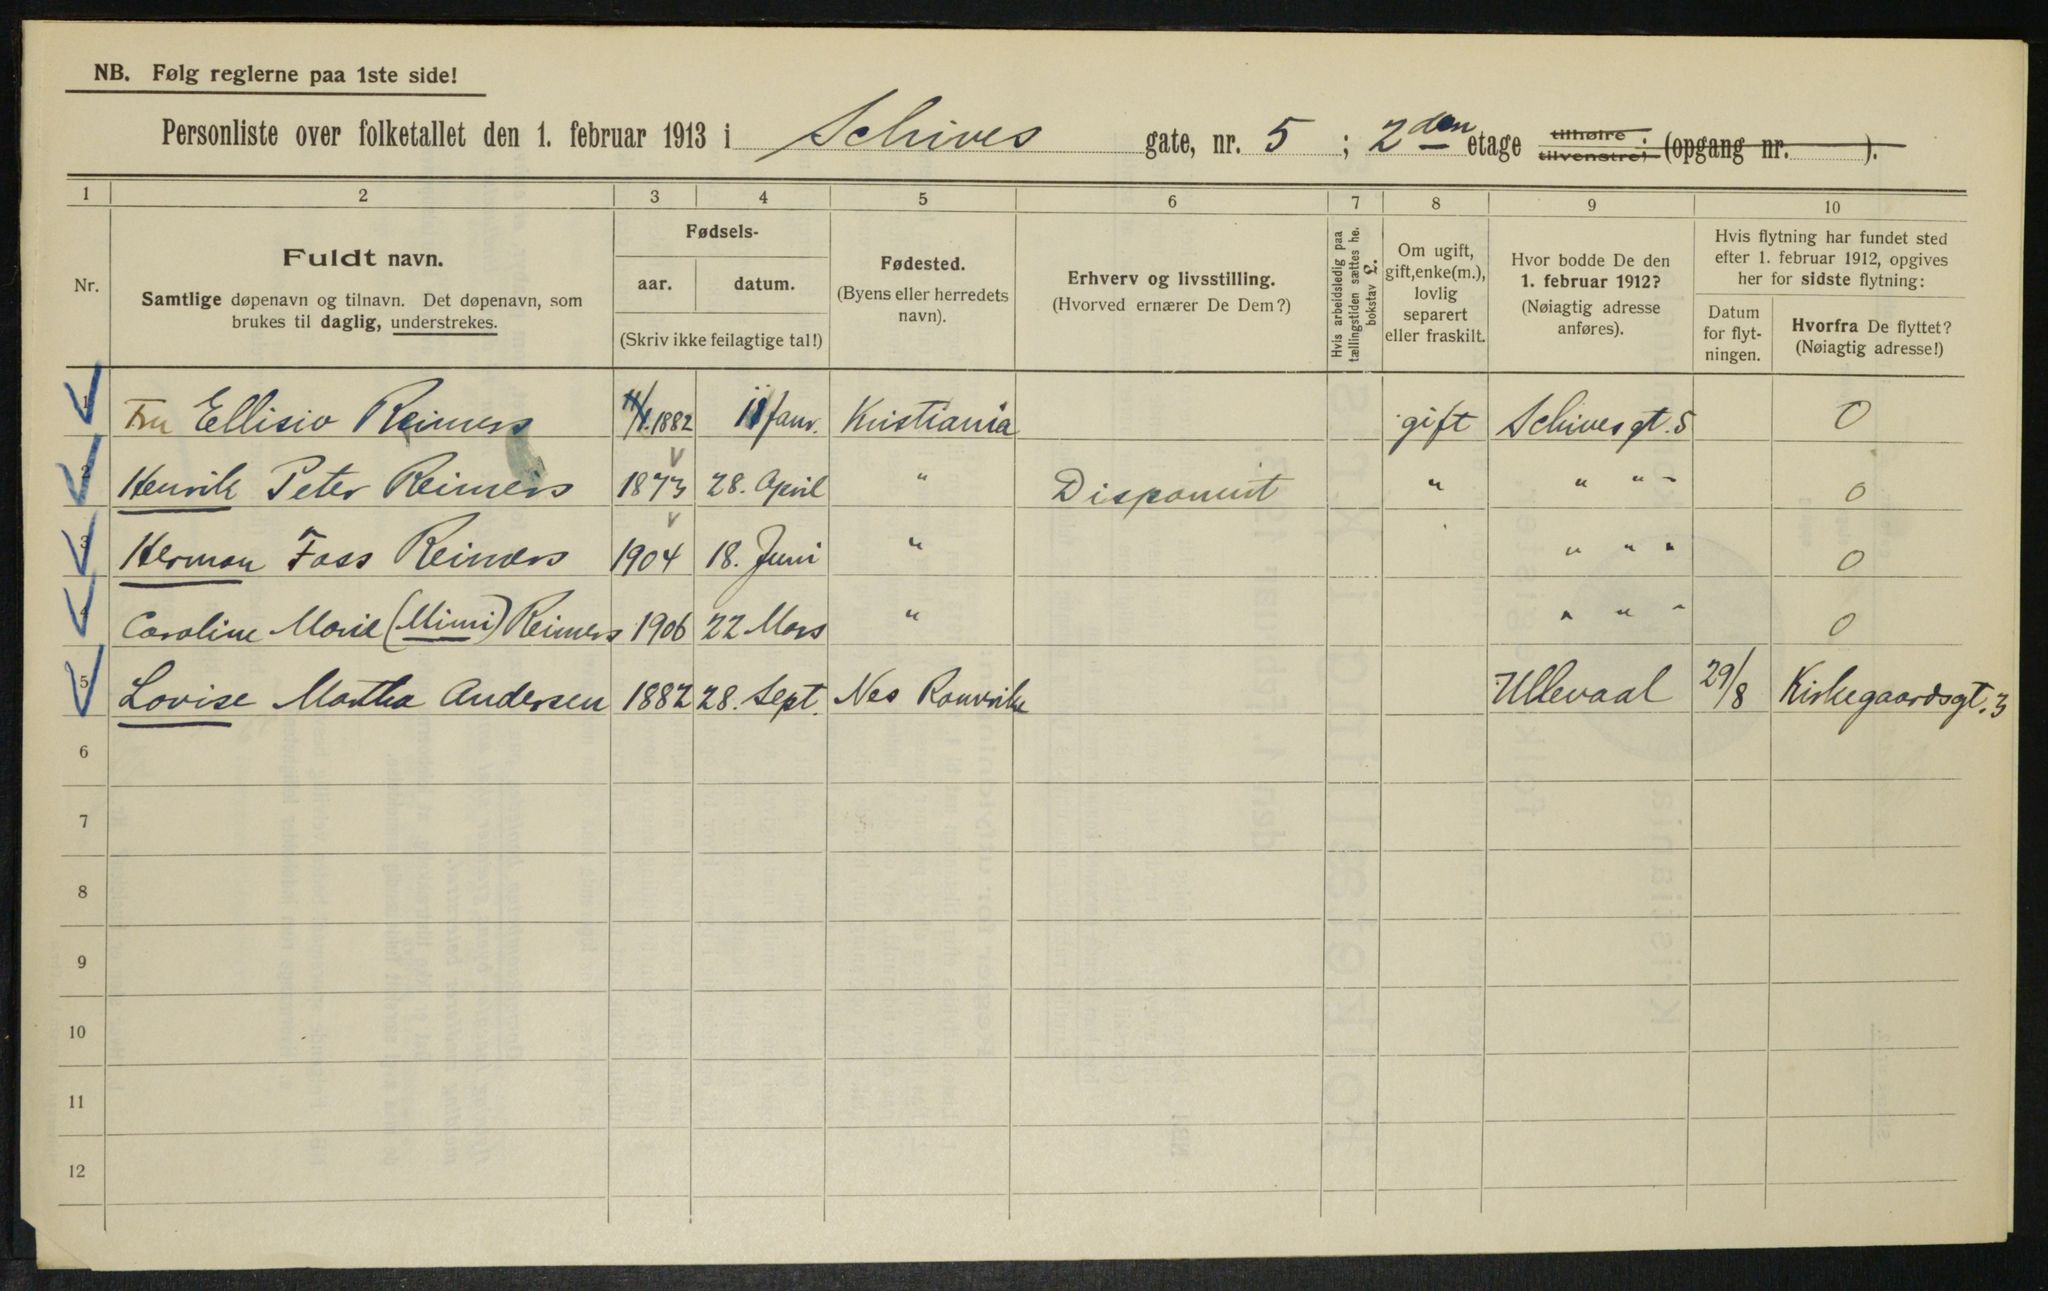 NB. Følg reglerne paa 1ste side!
Personliste over folketallet den 1. februar 1913 i Schives gate, nr. 5 ; 2den etage tilhøire ; tilvenstre; (opgang nr. ).
1 2 3 4 5 6 7 8 9 10
Nr.
Fuldt navn.
Samtlige døpenavn og tilnavn. Det døpenavn, som
brukes til daglig, understrekes.
Fødsels-
aar. datum.
(Skriv ikke feilagtige tal!)
Fødested.
(Byens eller herredets
navn).
Erhverv og livsstilling.
(Hvorved ernærer De Dem?)
Hvis arbeidsledig paa
tællingstiden sættes he.
bokstav L.
Om ugift,
gift, enke(m.),
lovlig
separert
eller fraskilt.
Hvor bodde De den
1. februar 1912?
(Nøiagtig adresse
anføres).
Hvis flytning har fundet sted
efter 1. februar 1912, opgives
her for sidste flytning:
Datum
for flyt-
ningen.
Hvorfra De flyttet?
(Nøiagtig adresse!)
1 Fru Ellisiv Reimers 11/1.1882 11 Janr. Kristiania gift Schivesgt. 5 0
2 Henrik Peter Reimers 1873 28. April " Disponent " " " " 0
3 Herman Foss Reimers 1904 18. Juni " " " " 0
4 Caroline Marie (Mimi) Reimers 1906 22 Mars " " " " 0
5 Lovise Martha Andersen 1882 28. Sept. Nes Ullevaal 29/8 Kirkegaardsgt. 3
6
7
8
9
10
11
12